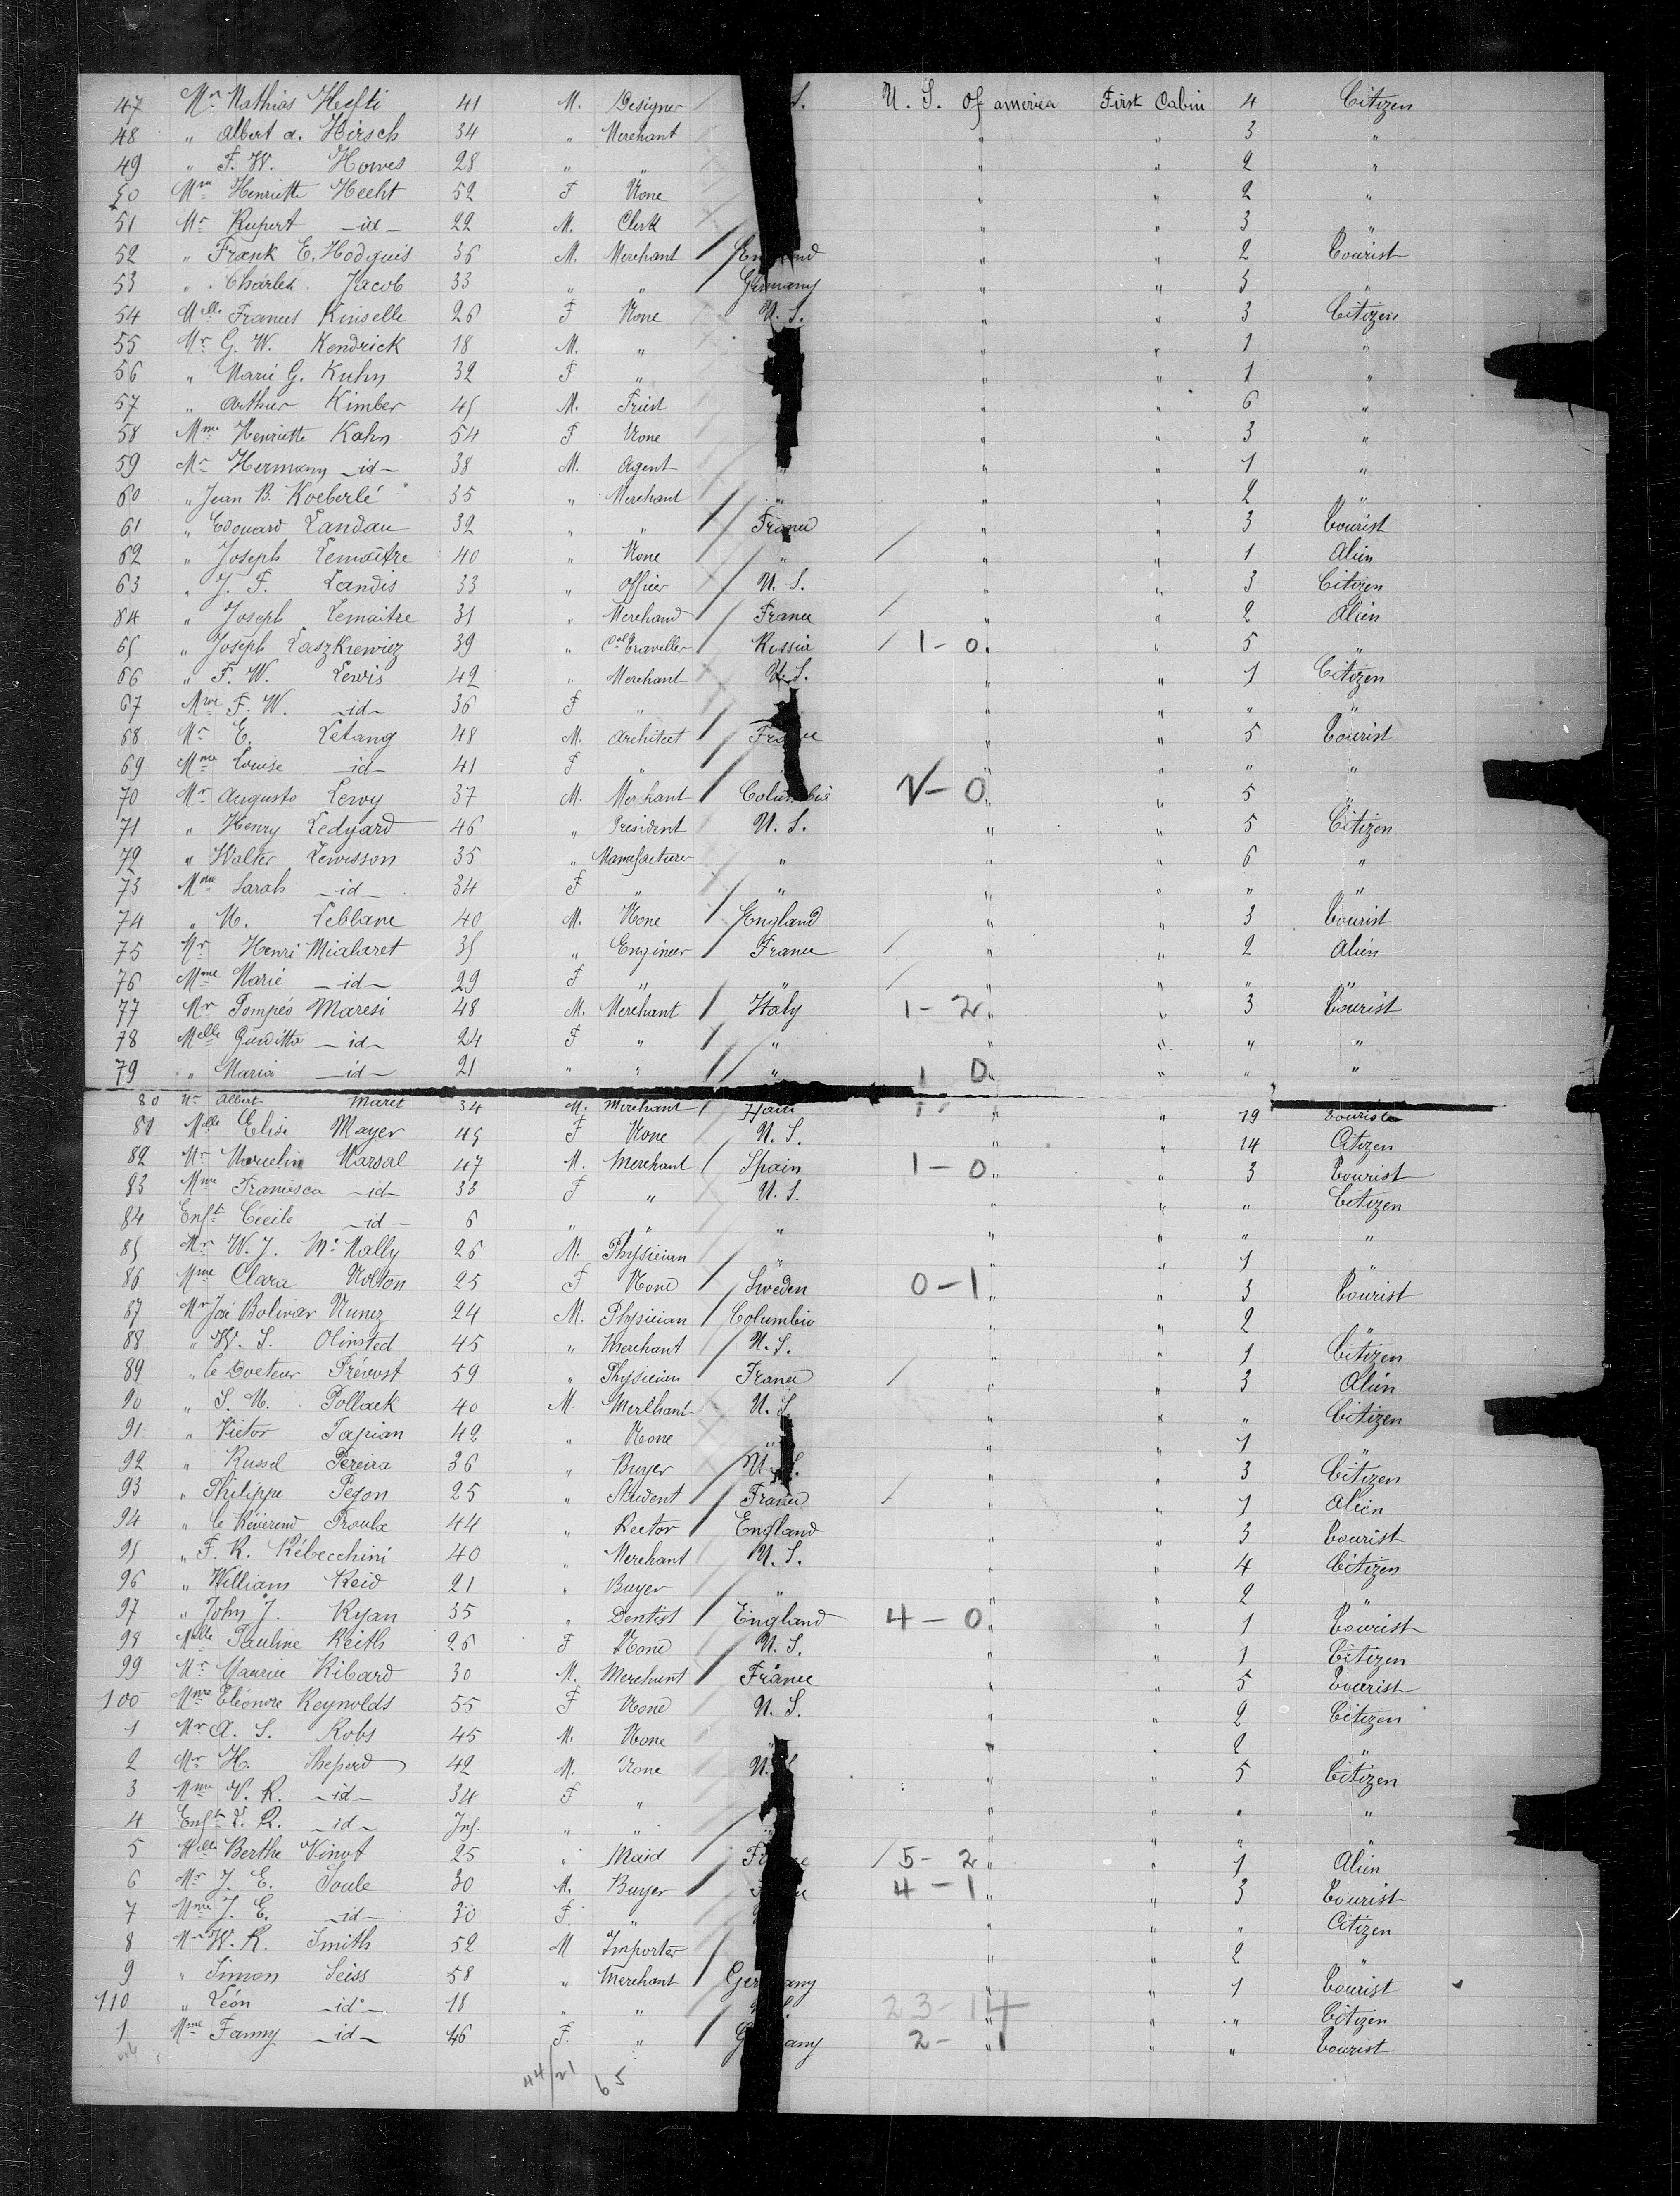 47 Mr Mathias Hefti 41 M. Designer S. U. S. Of america First Cabin 4 Citizen
48 " Albert a. Hirsch 34 " Merchant " " 3 "
49 " F. W. Howes 28 " " " " 2 "
50 Mme Henriette Hecht 52 F None " " 2 "
51 Mr Rupert -id- 22 M. Clerk " " 3 "
52 " Frank E. Hodguis 36 M. Merchant / England " " 2 Tourist
53 " Charles Jacob 33 " " Germany " " 3 "
54 Melle Frances Kinselle 26 F None U. S. " " 3 Citizen
55 Mr G. W. Kendrick 18 M. " " " 1 "
56 " Marie G. Kuhn 32 F " " " 1 "
57 " Arthur Kimber 45 M. Priest " " 6 "
58 Mme Henriette Kahn 54 F None " " 3 "
59 Mr Hermany -id- 38 M. Agent " " " 1 "
60 " Jean B. Koeberlé 35 " Merchant " " " 2 "
61 " Edouard Landau 32 " " / France " " 3 Tourist
62 " Joseph Lemaître 40 " None / " / " " 1 Alien
63 " J. F. Landis 33 " Officer U. S. " " 3 Citizen
64 " Joseph Lemaitre 31 " Merchand / France / " " 2 Alien
65 " Joseph Laszkiewiez 39 " Cal Traveller / Russia / 1-0 " " 5 "
66 " F. W. Lewis 42 " Merchant U. S. " " 1 Citizen
67 Mme F. W. -id- 36 F " " " " "
68 Mr E. Letang 48 M. Architect / France " " 5 Tourist
69 Mme Louise -id- 41 F " " " " "
70 Mr Augusto Levoy 37 M. Merchant / Columbia 2-0 " " 5 "
71 " Henry Ledyard 46 " President U. S. " " 5 Citizen
72 " Walter Lewisson 35 " Manufacturer " " " 6 "
73 Mme Sarah -id- 34 F " " " " " "
74 " M. Leblanc 40 M. None / England " " 3 Tourist
75 Mr Henri Mialaret 35 " Engineer / France / " " 2 Alien
76 Mme Marie -id- 29 F " / " / " " " "
77 Mr Pompéo Maresi 48 M. Merchant / Italy 1-2 " " 3 Tourist
78 Melle Guiditta -id- 24 F " / " " " " "
79 " Maria -id- 21 " " / " 1 0 " " " "
80 Mr Albert Maret 34 M. Merchant / " " 19 Tourist
81 Melle Elise Mayer 45 F None U. S. " " 14 Citizen
82 Mr Marcelin Marsal 47 M. Merchant / Spain 1-0 " " 3 Tourist
83 Mme Francisca -id- 33 F " U. S. " " " Citizen
84 Enft Cécile -id- 6 " " " " " " "
85 Mr W. J. Mc Nally 26 M. Physician " " " 1 "
86 Mme Clara Nolton 25 F None / Sweden 0-1 " " 3 Tourist
87 Mr José Bolivar Nunez 24 M. Physician / Columbia " " 2 "
88 " W. S. Olmsted 45 " Merchant U. S. " " 1 Citizen
89 " le Docteur Prévost 59 " Physicien / France / " " 3 Alien
90 " S. M. Pollack 40 M. Merchant U. S. " " " Citizen
91 " Victor Papian 42 " None " " " 1 "
92 " Russel Pereira 36 " Buyer U. S. " " 3 Citizen
93 " Philippe Pegon 25 " Student / France / " " 1 Alien
94 " le Révérend Proulx 44 " Rector / England " " 3 Tourist
95 " F. R. Rébecchini 40 " Merchant U. S. " " 4 Citizen
96 " William Reid 21 " Buyer " " " 2 "
97 " John J. Ryan 35 " Dentist / England 4-0 " " 1 Tourist
98 Melle Pauline Reith 26 F None U. S. " " 1 Citizen
99 Mr Maurice Ribard 30 M. Merchant / France " " 5 Tourist
100 Mme Eléonore Reynolds 55 F None U. S. " " 2 Citizen
1 Mr A. S. Robs 45 M. None " " 2 "
2 Mr H. Sheperd 42 M. None U. S. " " 5 Citizen
3 Mme V. R. -id- 34 F " " " " "
4 Enft V. R. -id- Inf. " " " " " "
5 Melle Berthe Vinot 25 " Maid / France / 5-2 " " 1 Alien
6 Mr J. E. Soule 30 M. Buyer / 4-1 " " 3 Tourist
7 Mme J. E. -id- 30 F. " " " " Citizen
8 Mr W. R. Smith 52 M Importer " " 2 "
9 " Simon Seiss 58 " Merchant / Germany " " 1 Tourist
110 " Léon -id- 18 " " 23-14 " " " Citizen
1 Mme Fanny -id- 46 F. " / Germany 2-1 " " " Tourist
44/21 65